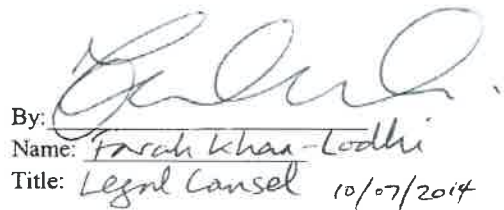 By:
Name: Farah Khan-Lodhi
Title: Legal Cansel 10/07/2014